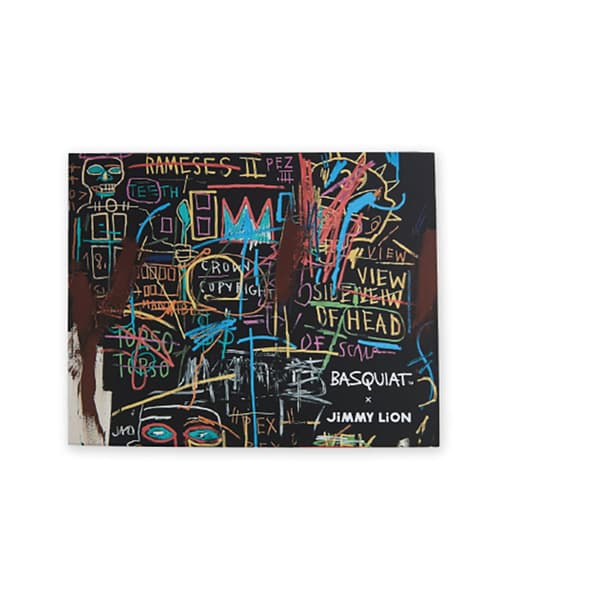 RAMESES II
PEZ
III
TEETH
CROWN
COPYRIGH
VIEW
VIEW
SIDEVEIW
OF HEAD
OF SCALP
TORSO
TORSO
BASQUIAT™
×
JiMMY LiON
APEX